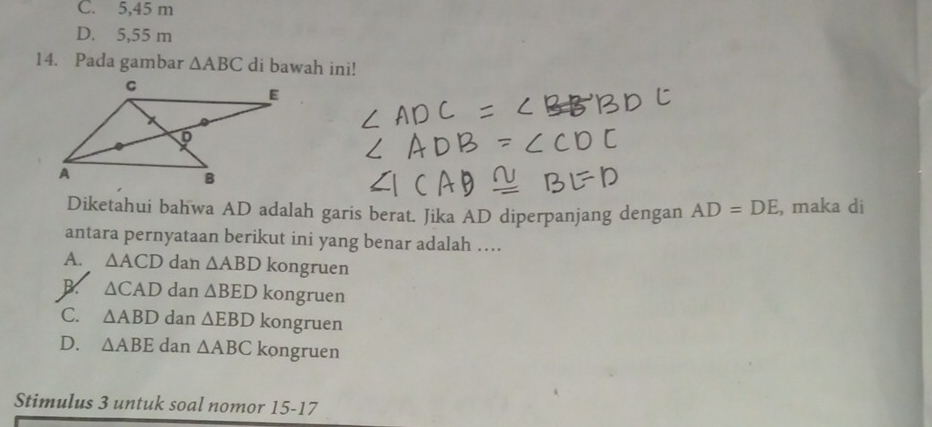 C. 5,45 m
D. 5,55 m
14. Pada gambar ΔABC di bawah ini!
C
E
D
A
B
∠ ADC = ∠ BDE
∠ ADB = ∠ CDE
CAD ≅ BED
Diketahui bahwa AD adalah garis berat. Jika AD diperpanjang dengan AD = DE, maka di
antara pernyataan berikut ini yang benar adalah ....
A. ΔACD dan ΔABD kongruen
B. ΔCAD dan ΔBED kongruen
C. ΔABD dan ΔEBD kongruen
D. ΔABE dan ΔABC kongruen
Stimulus 3 untuk soal nomor 15-17